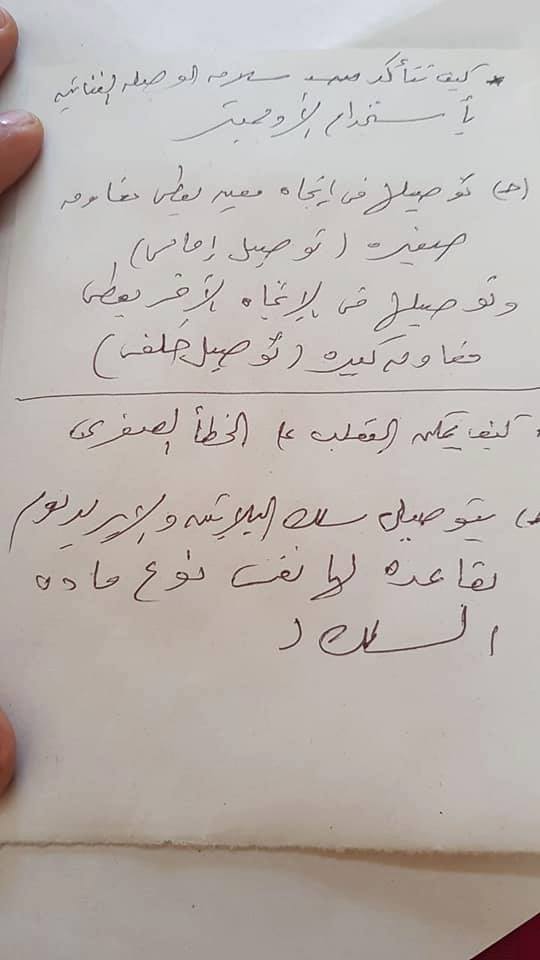 * كيف تتأكد من سلامه الوصله الثنائيه
بأستخدام الأوميتر
(جـ) توصيلها في اتجاه معين يعطى مقاومه
صغيره (توصيل إمامى)
وتوصيلها في الإتجاه الأخر يعطى
مقاومه كبيره (توصيل خلفى)
* كيف يمكن التغلب على الخطأ الصفرى
جـ) بتوصيل سلك البلاتين والإيريديوم
بقاعده لها نفس نوع ماده
السلك